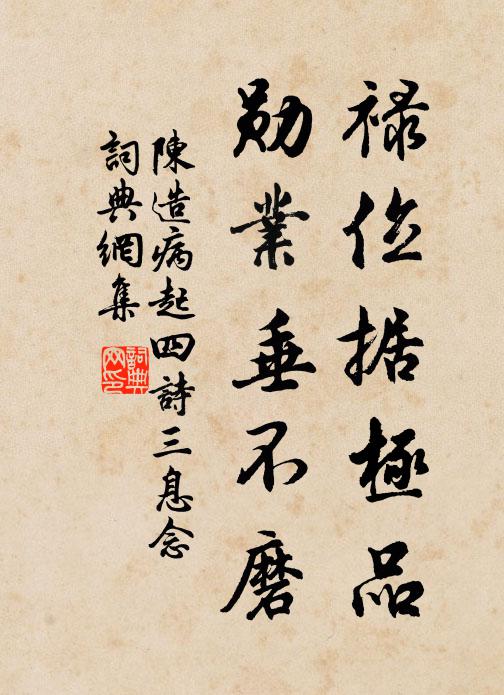 禄位据極品
勛業垂不磨
陳造病起四詩三息念
詞典網集
詞典
网印